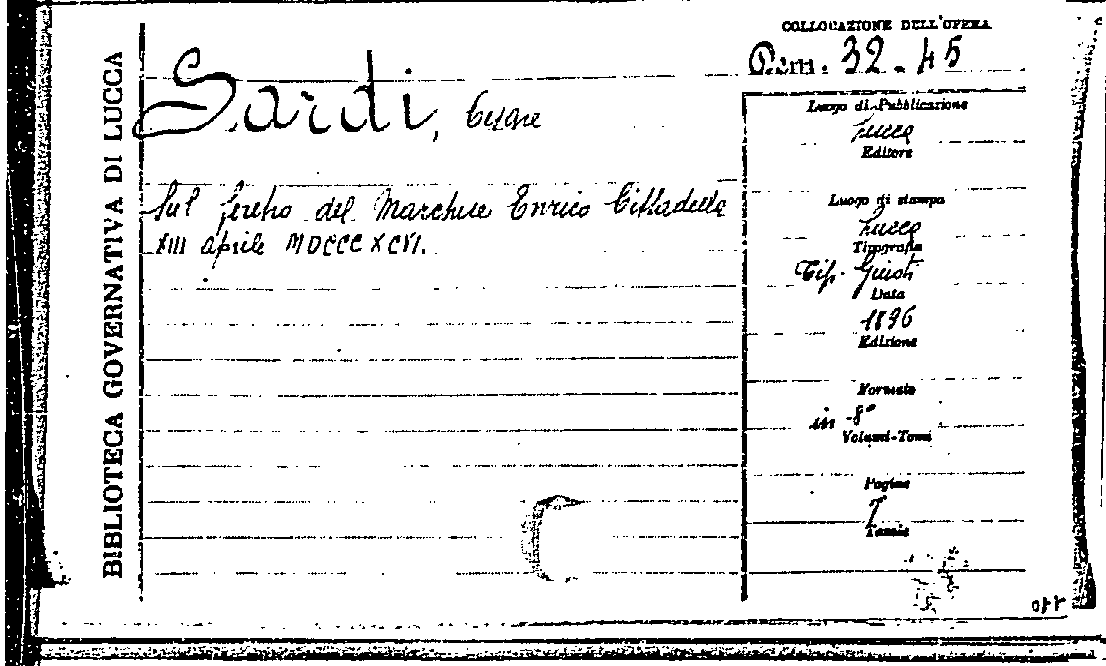 BIBLIOTECA GOVERNATIVA DI LUCCA
COLLOCAZIONE DELL'OPERA
32.45
Sardi, Cesare
Sul feretro del Marchese Enrico Cittadella
XIII aprile MDCCCXCVI.
Luogo di Pubblicazione
Lucca
Editore
Luogo di stampa
Lucca
Tipografia
Tip. Giusti
Data
1896
Edizione
Formato
in-8°
Volumi-Tomi
Pagine